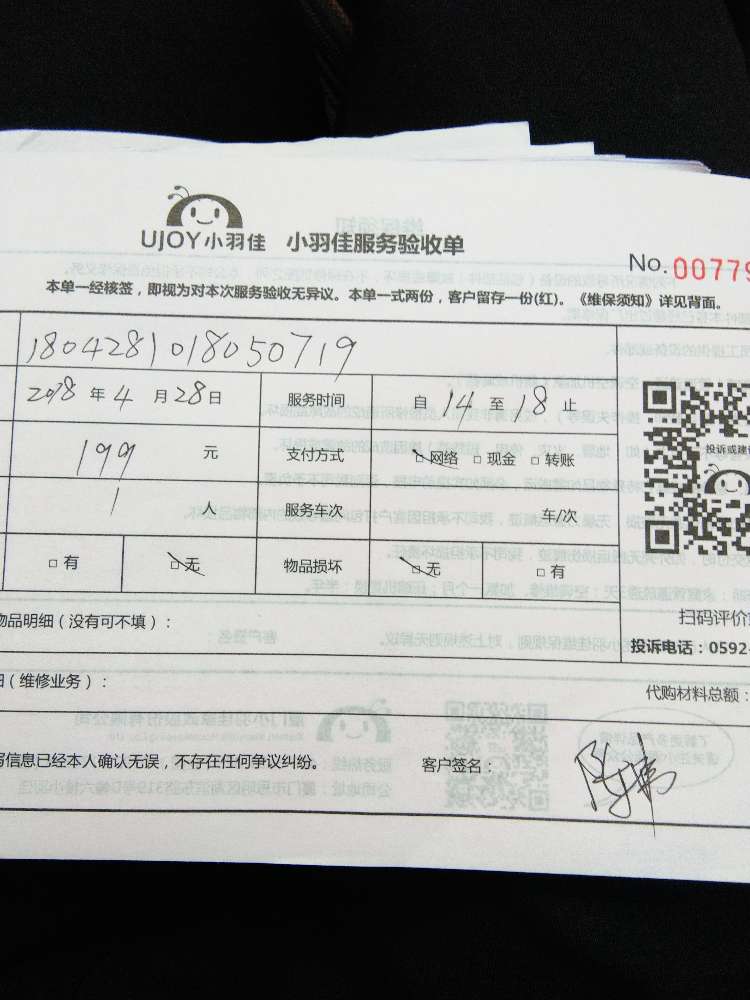 UJOY小羽佳 小羽佳服务验收单
No.00779
本单一经核签，即视为对本次服务验收无异议。本单一式两份，客户留存一份(红)。《维保须知》详见背面。
1804281018050719
2018年4月28日 服务时间 自14至18止
199元 支付方式 □网络 □现金 □转账
投诉或建
1人 服务车次 车/次
□有 □无 物品损坏 □无 □有
物品明细（没有可不填）：
扫码评价
投诉电话：0592-
（维修业务）：
代购材料总额：
写信息已经本人确认无误，不存在任何争议纠纷。 客户签名：